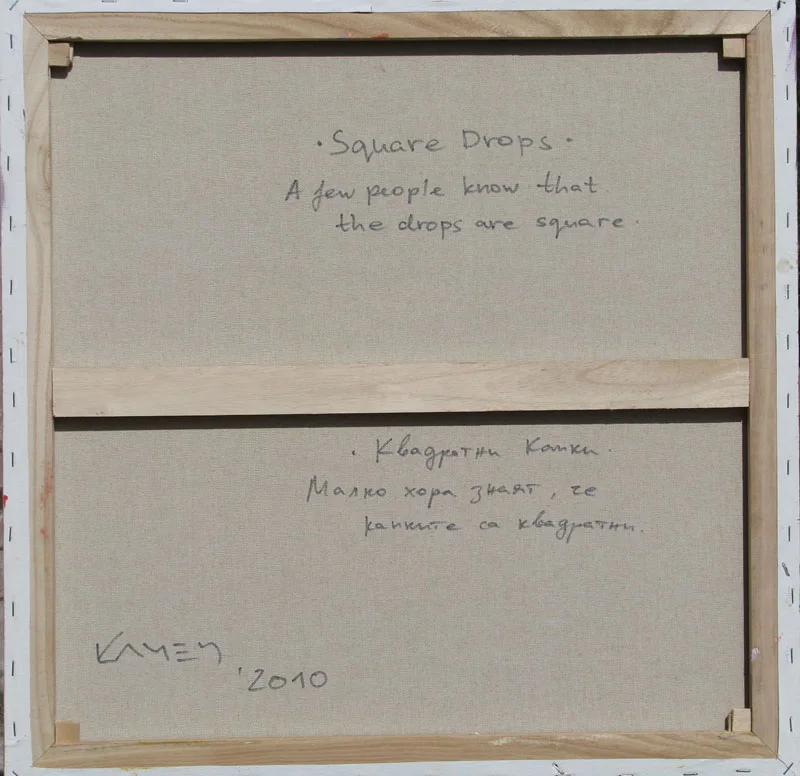 · Square Drops ·
A few people know that
the drops are square.
· Квадратни Капки.
Малко хора знаят, че
капките са квадратни.
КАМЕН
'2010